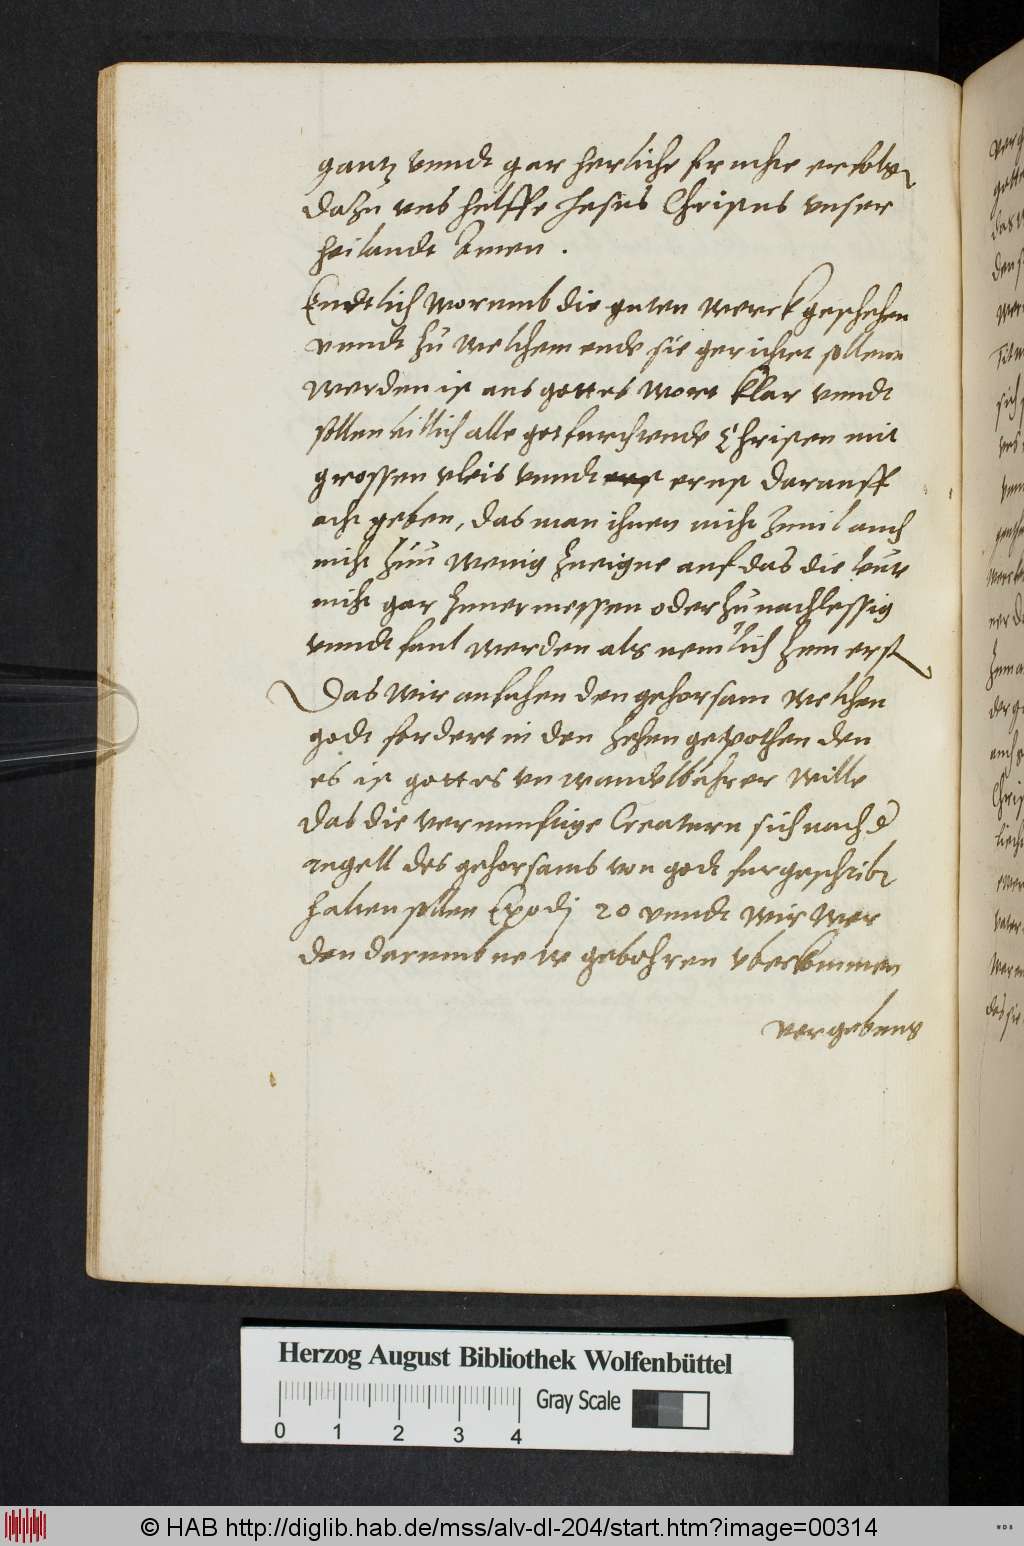 gantz vnndt gar herliche frucht erfolg
dazu vns helffe Jhesus Christus vnser
heilandt Amen .
Endtlich worumb die guten werck geschehen
vnndt zu welchem ende sie gerichtet sollenn
werden ist aus gottes wort klar vnndt
sollen billich alle gotfurchtende Christen mit
grossen vleis vnndt ernst darauff
acht geben, das man ihnen nicht zuuil auch
nicht zuu wenig zueigne auf das die leut
nicht gar zuuermessen oder zu nachlessig
vnndt faul werden als nemlich zum erst
Das wir ansehen den gehorsam welchen
godt fordert in den zehen gepothen den
es ist gottes vn wandelbahrer wille
das die vernunftige Creaturn sich nach d
regell des gehorsams von godt furgeschribn
halten sollen Exodj 20 vnndt wir wer
den darumb new gebohren vberkommen
vergebens
Herzog August Bibliothek Wolfenbüttel
Gray Scale
0 1 2 3 4
© HAB http://diglib.hab.de/mss/alv-dl-204/start.htm?image=00314